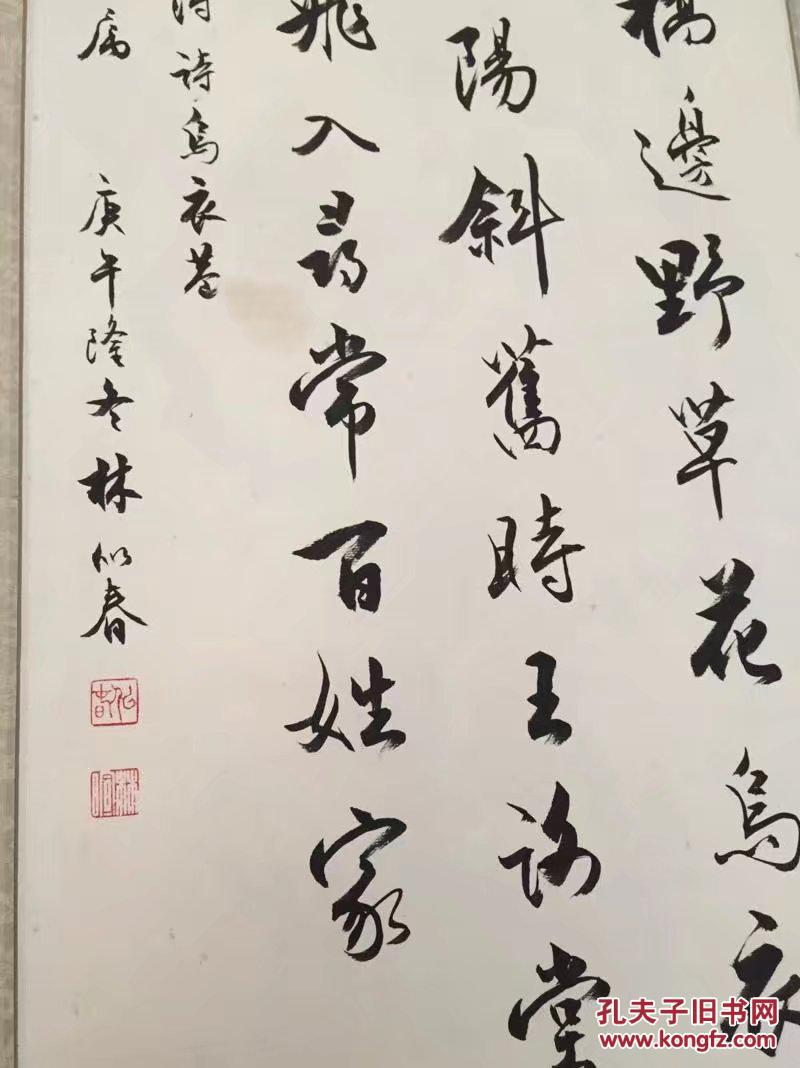 橋邊野草花烏衣
陽斜舊時王謝堂
飛入尋常百姓家
詩烏衣巷
属 庚午隆冬林似春
孔夫子旧书网
www.kongfz.com